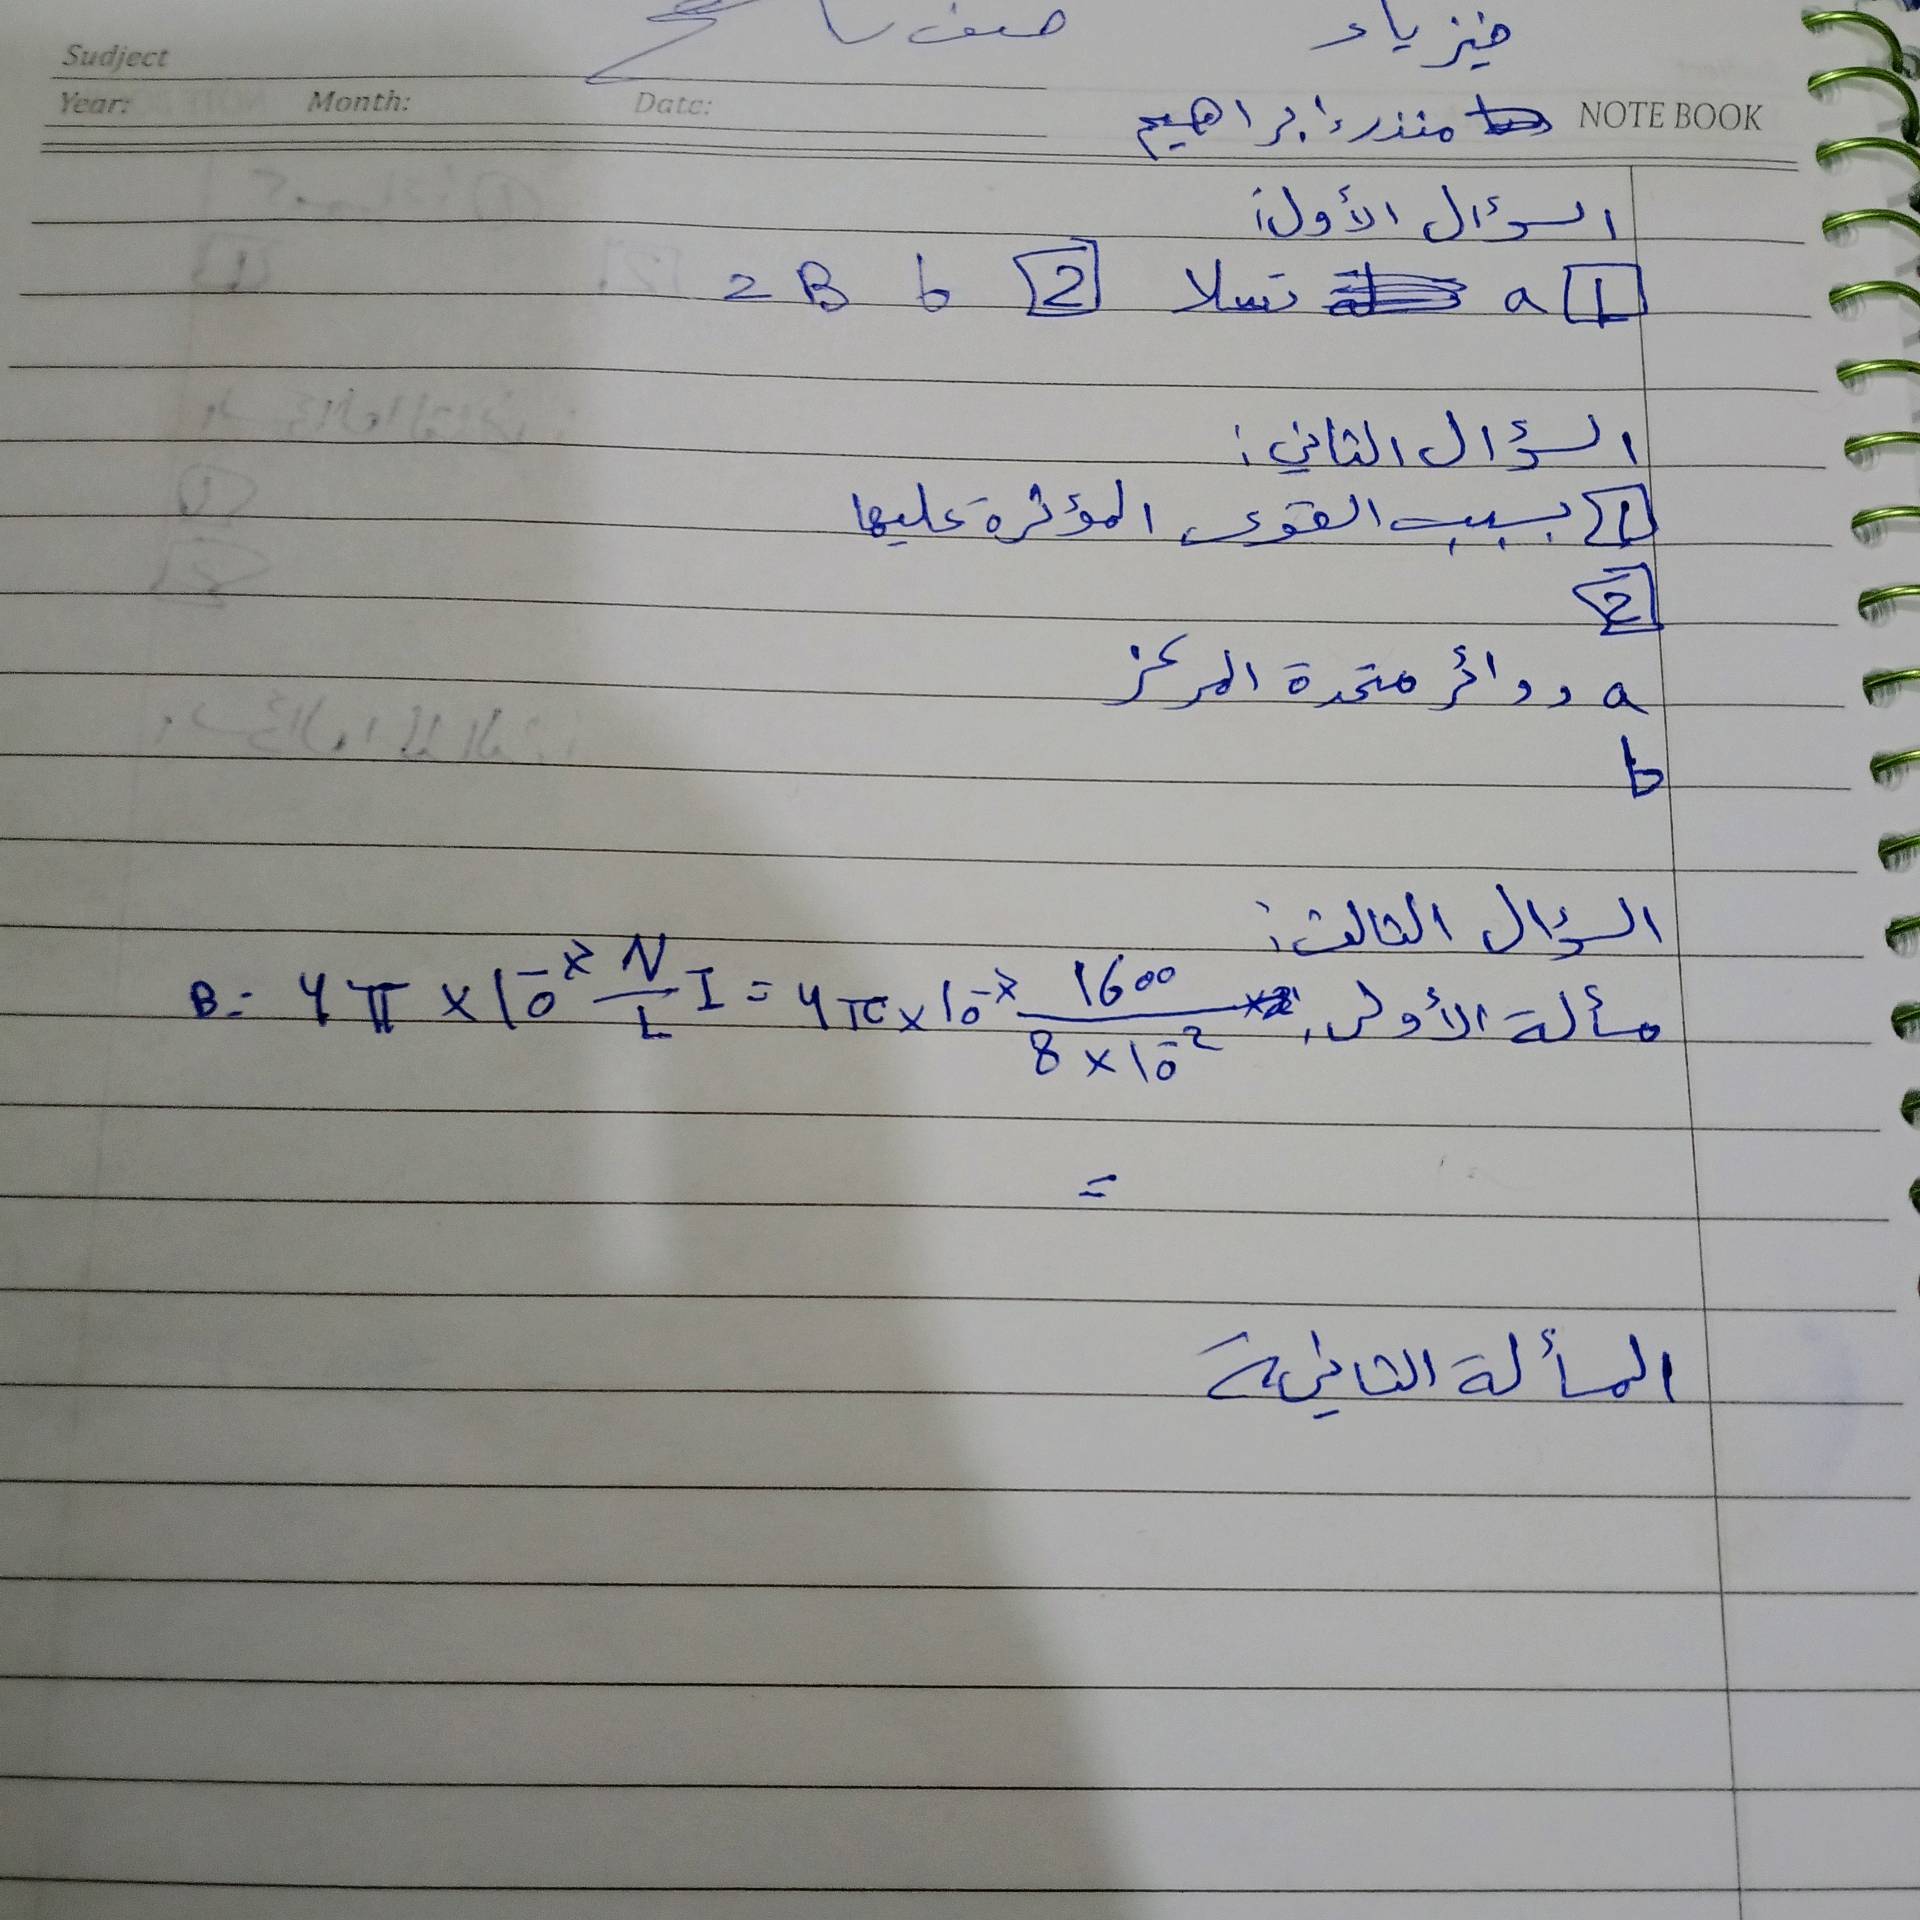 فيزياء
Sudject
Year: Month: Date:
NOTE BOOK
منذر إبراهيم
السؤال الأول:
1 a تسلا 2 b 2B
السؤال الثاني:
1 بسبب القوى المؤثرة عليها
2
a دوائر متحدة المركز
b
السؤال الثالث:
مسألة الأولى
B = 4π × 10⁻⁷ N/L I = 4π × 10⁻⁷ 1600/8 × 10⁻²
=
المسألة الثانية